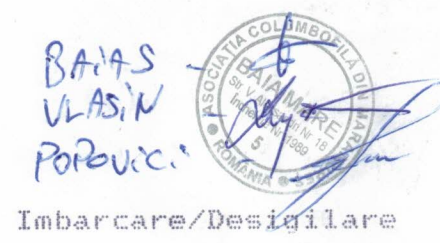 BAIAS -
VLASIN -
POPOVICI -
ASOCIATIA COLUMBOFILA DIN MARA
BAIA MARE
Str. V.
Nr. 18
Nr. 1989
5
ROMANIA
Imbarcare/Desigilare